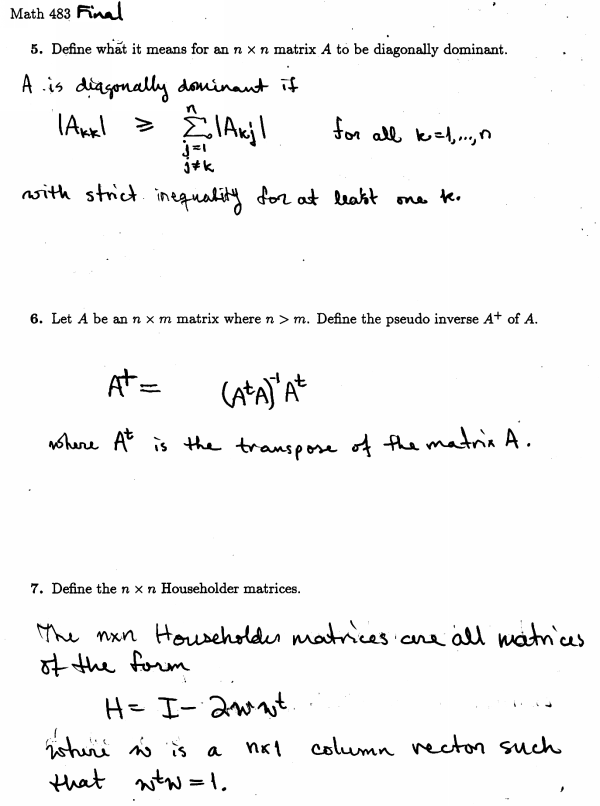 Math 483 Final
5. Define what it means for an n × n matrix A to be diagonally dominant.
A is diagonally dominant if
|Akk| ⩾ n∑j=1 j≠k |Akj| for all k=1,...,n
with strict inequality for at least one k.
6. Let A be an n × m matrix where n > m. Define the pseudo inverse A⁺ of A.
A⁺ = (AᵗA)⁻¹Aᵗ
where Aᵗ is the transpose of the matrix A.
7. Define the n × n Householder matrices.
The nxn Householder matrices are all matrices
of the form
H = I - 2wwᵗ
where w is a nx1 column vector such
that wᵗw = 1.